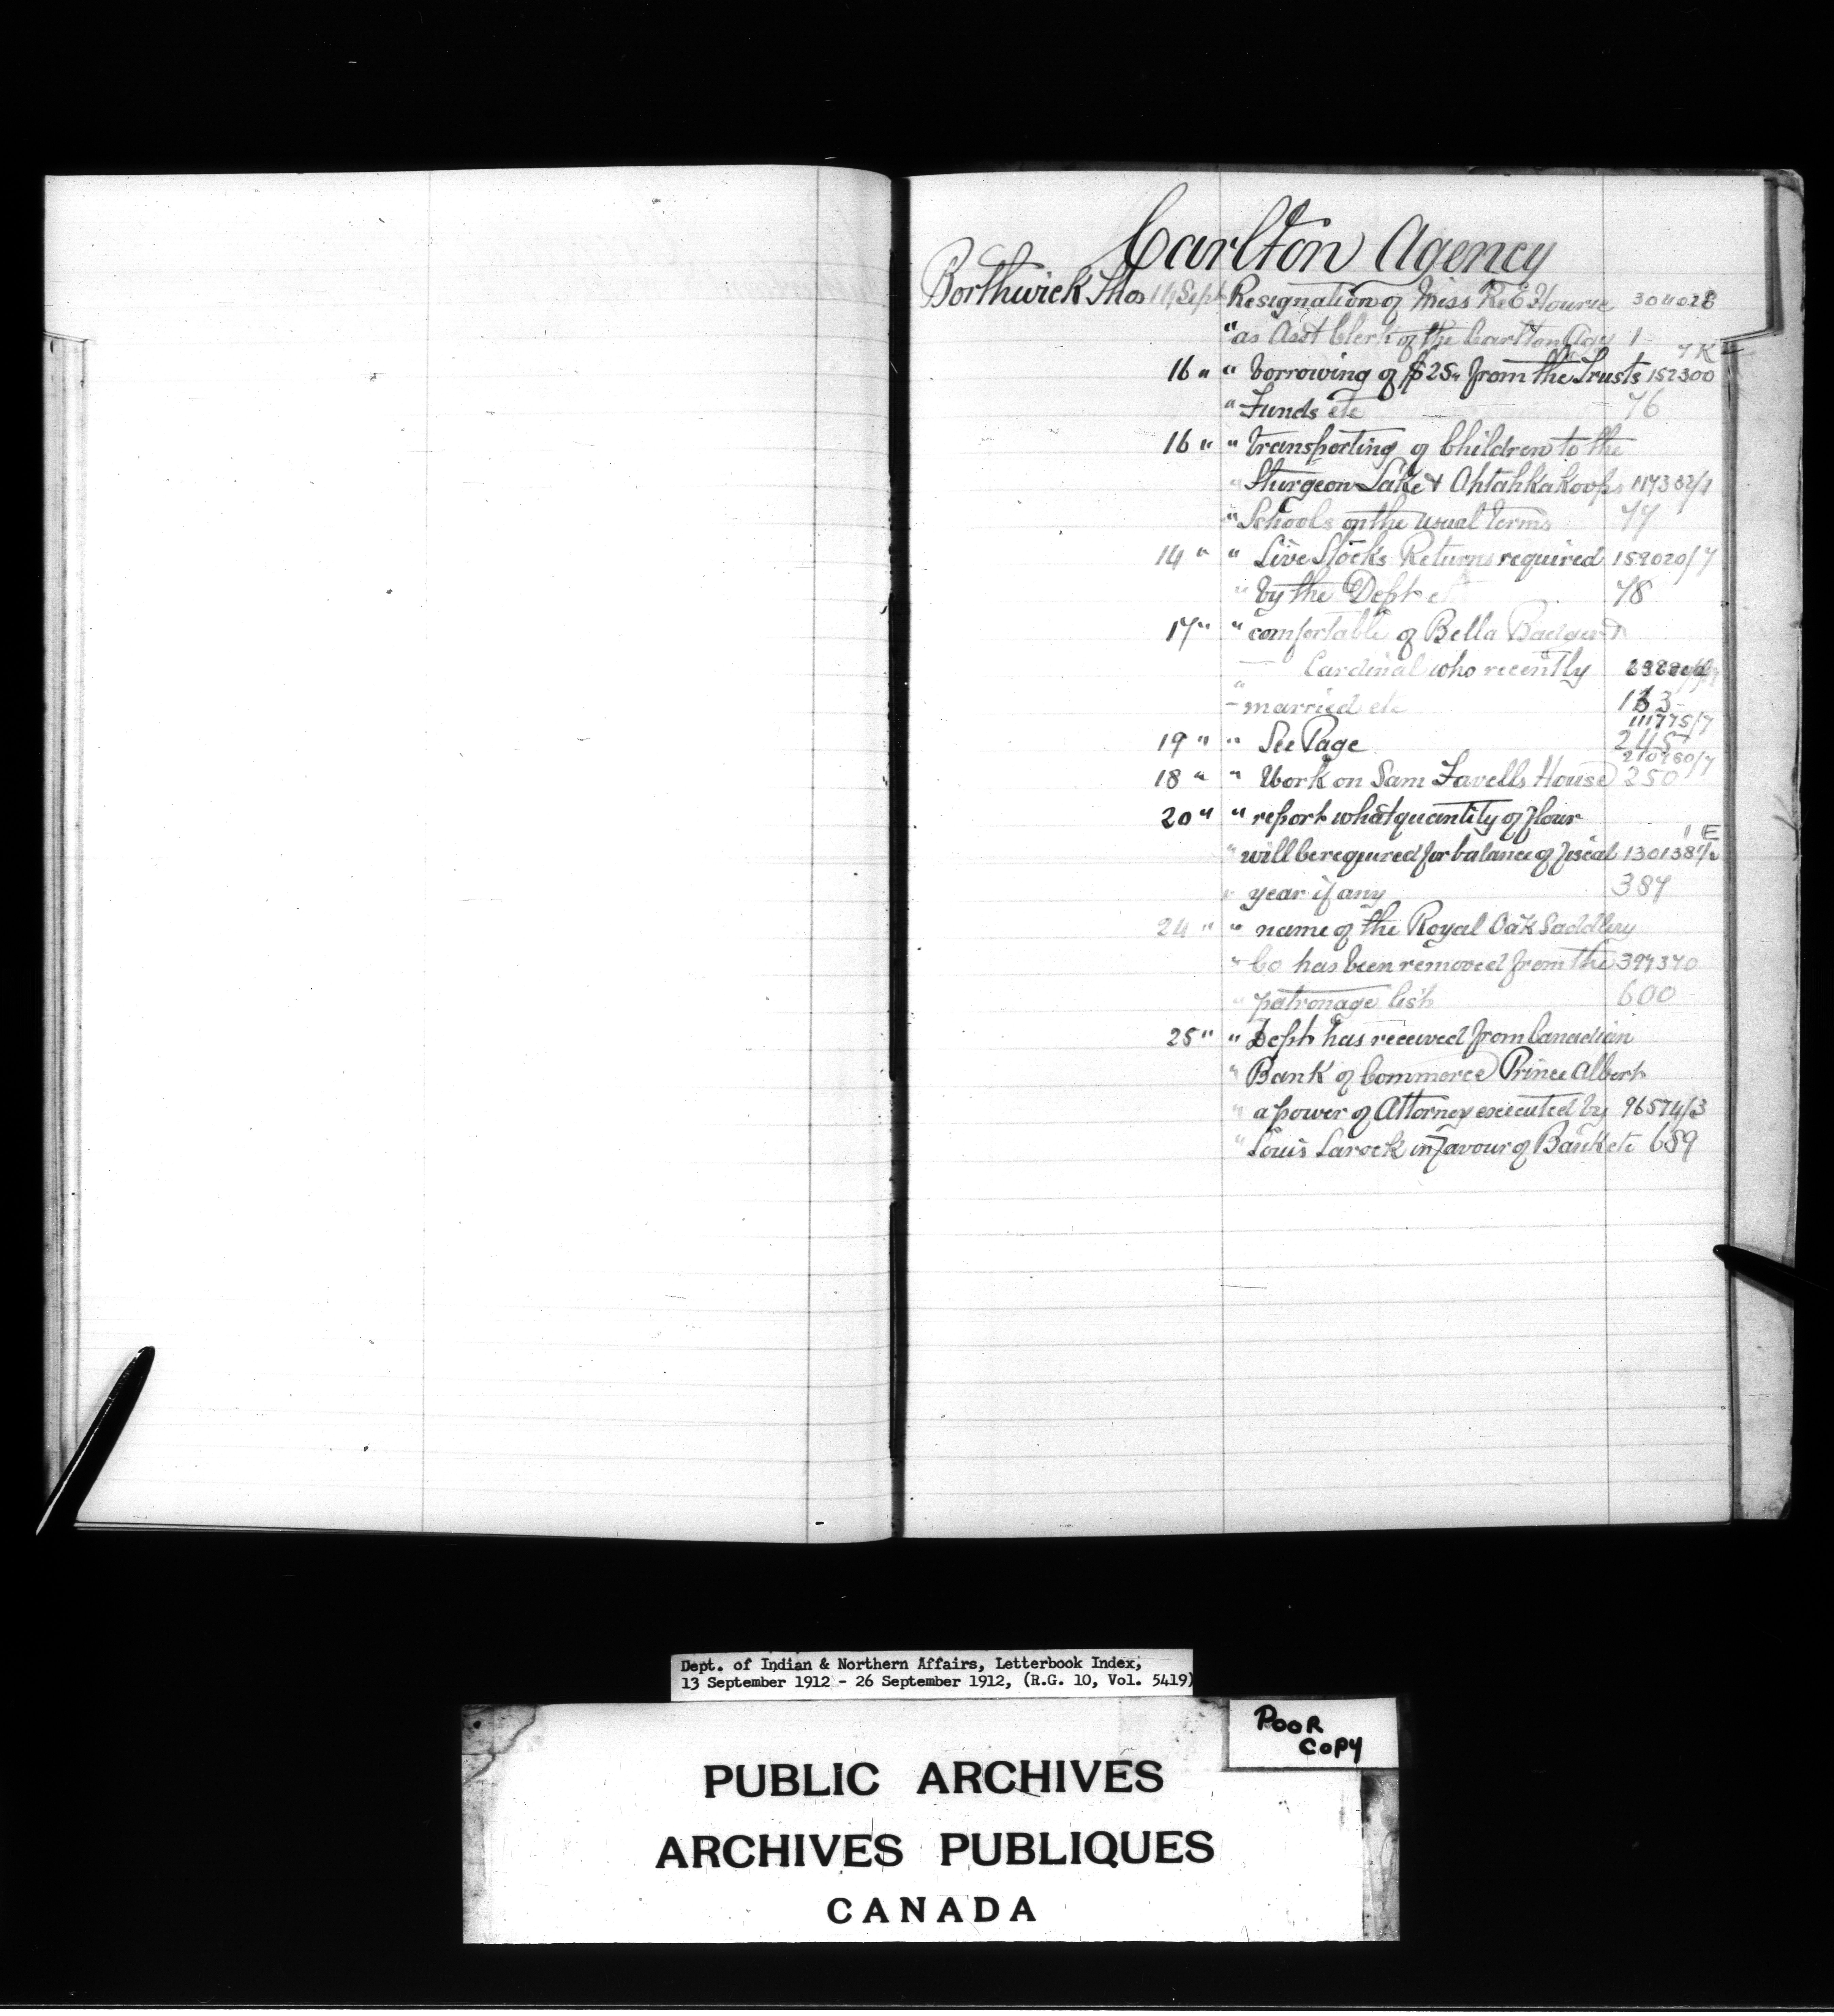 Carlton Agency
Borthwick Thos 14 Sept Resignation of Miss R.E Hourie 304028
" as Asst Clerk of the Carlton Agy 1
7 K
16 " " borrowing of $25. from the Trusts 152300
" Funds etc 76
16 " " transporting of Children to the
" Sturgeon Lake & Ahtahkakoops 117332/1
" Schools on the usual terms 77
14 " " Live Stocks Returns required 159020/7
" by the Dept 78
17 " " comfortable of Bella Badger
Cardinal who recently
" - married etc 133
111775/7
19 " " See Page 245
210960/7
18 " " Work on Sam Favells House 250
20 " " report what quantity of flour
1 E
" will be required for balance of fiscal 130138
" year if any 387
24 " " name of the Royal Oak Saddlery
" Co has been removed from the 397370
" patronage list 600
25 " " Dept has received from Canadian
" Bank of Commerce Prince Albert
" a power of Attorney executed by 96574/3
" Louis Larock in favour of Bank etc 689
Dept. of Indian & Northern Affairs, Letterbook Index,
13 September 1912 - 26 September 1912, (R.G. 10, Vol. 5419)
POOR
COPY
PUBLIC ARCHIVES
ARCHIVES PUBLIQUES
CANADA